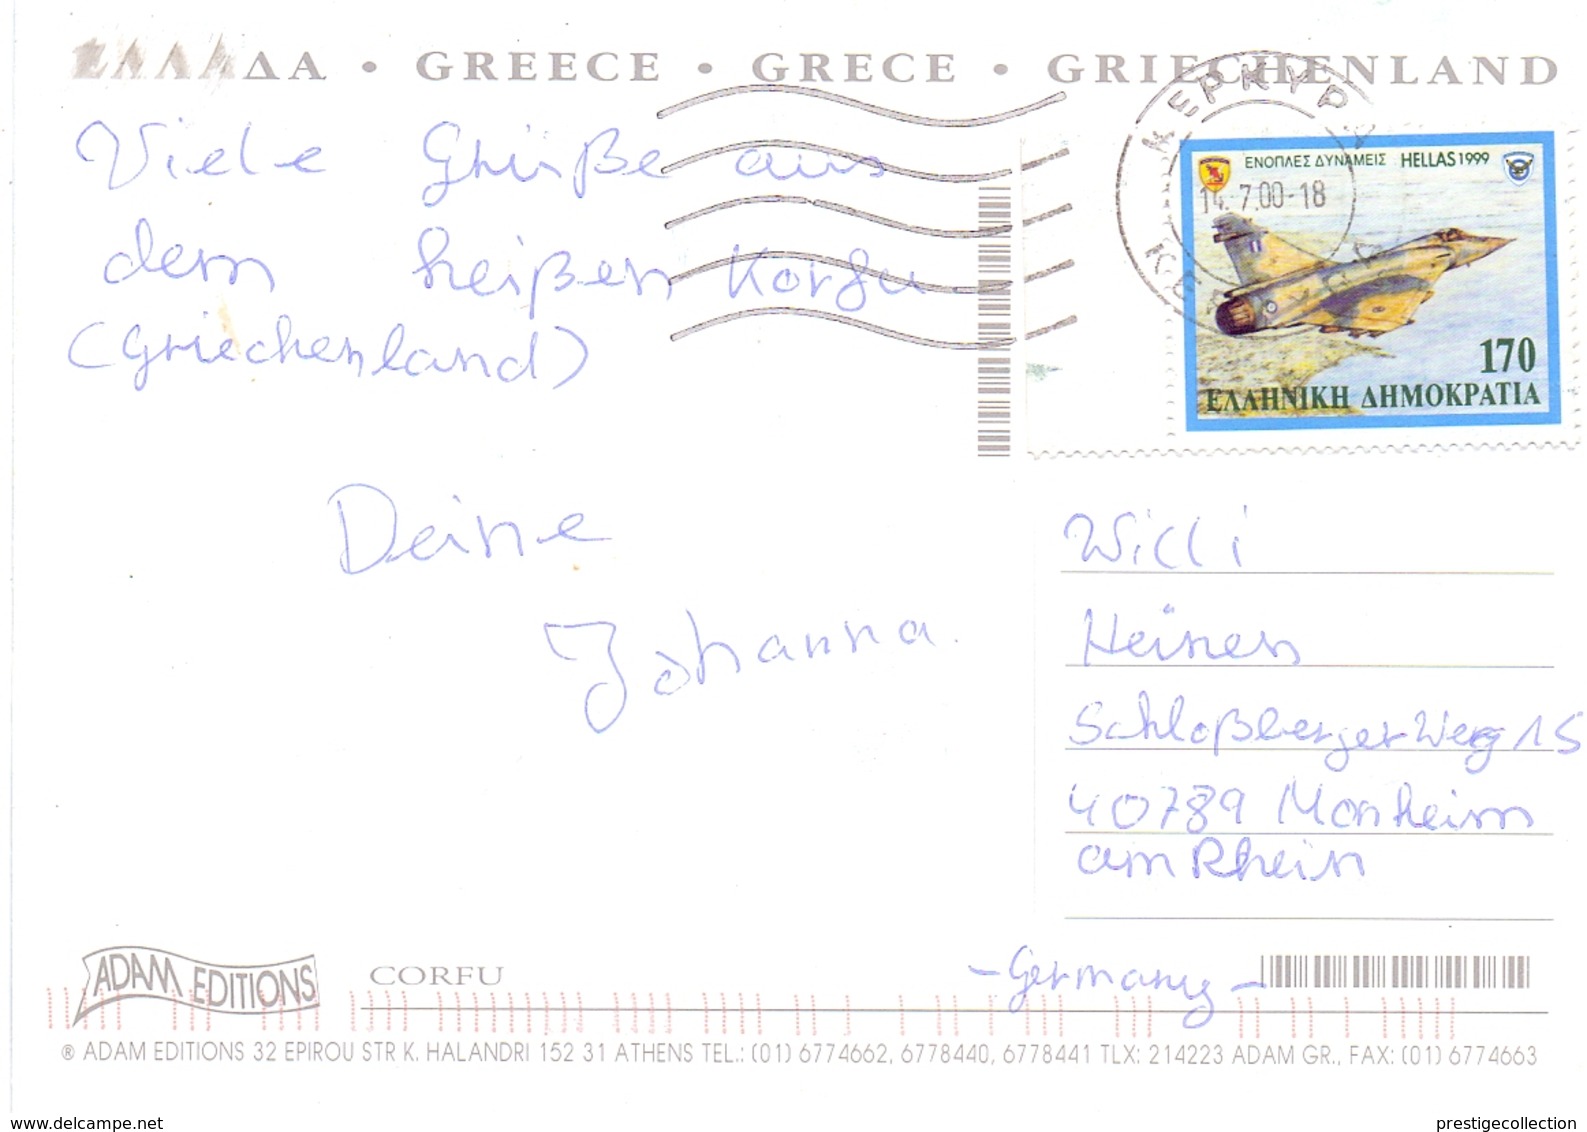 ΕΛΛΑΔΑ • GREECE • GRECE • GRIECHENLAND
Viele Grüße aus
dem heißen Korfu
(Griechenland)
Deine
Johanna.
ΚΕΡΚΥΡΑ
14.7.00-18
ΕΝΟΠΛΕΣ ΔΥΝΑΜΕΙΣ HELLAS 1999
170
ΕΛΛΗΝΙΚΗ ΔΗΜΟΚΡΑΤΙΑ
Willi
Heinen
Schloßberger Weg 15
40789 Monheim
am Rhein
-Germany-
ADAM EDITIONS
CORFU
® ADAM EDITIONS 32 EPIROU STR K. HALANDRI 152 31 ATHENS TEL.: (01) 6774662, 6778440, 6778441 TLX: 214223 ADAM GR., FAX: (01) 6774663
www.delcampe.net
prestigecollection